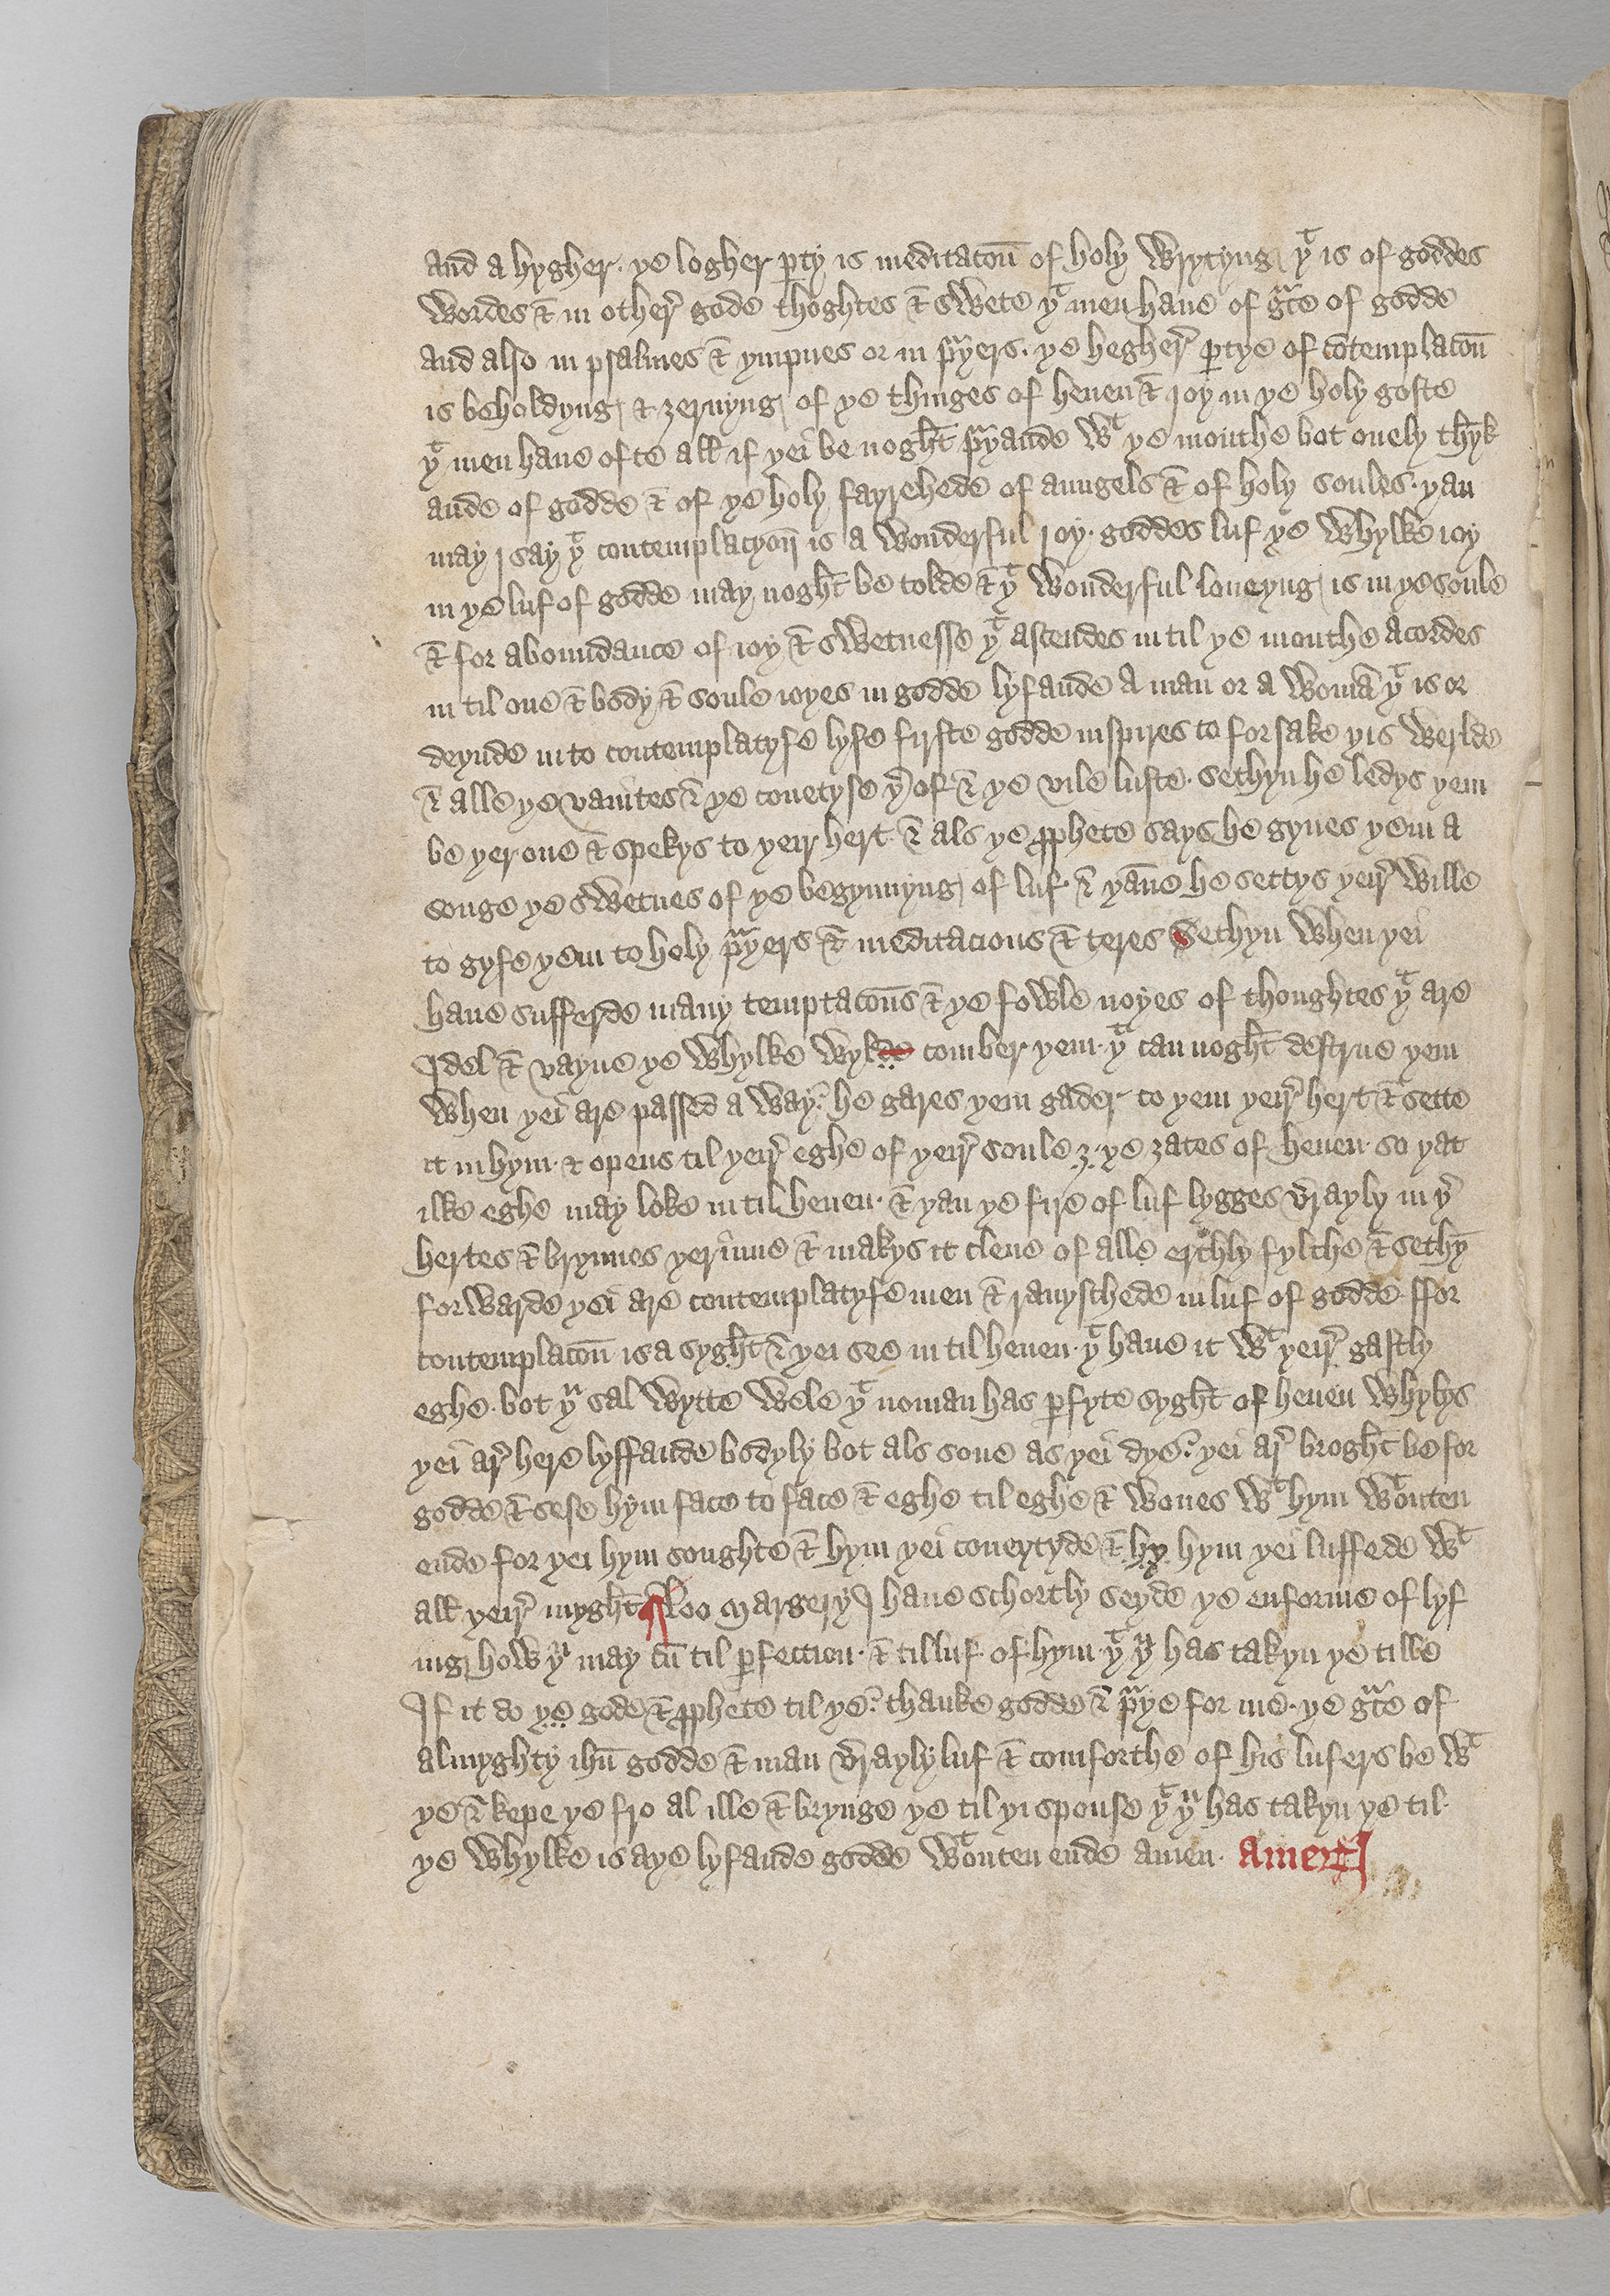 and a hygher. ye logher pty is meditacoū of holy Wrytyng yͭ is of goddes
Wordes & in other gode thoghtes & swete yͭ men haue of gᵃce of godde
and also in psalmes & ympnes or in pᵃyers. ye hegher ptye of cōtemplacoū
is beholdyng & ȝernyng of ye thinges of heuen & ioy in ye holy goste
yͭ men haue ofte all if yei be noght pᵃyande Wͭ ye mouthe bot onely thȳk
ande of godde & of ye holy fayrehede of aungels & of holy soules. yan
may I say yͭ contemplacyon̄ is a Wonderful ioy. goddes luf ye Whylke ioy
in ye luf of godde may noght be tolde & yͭ Wonderful loueyng is in ye soule
& for aboundance of ioy & sWetnesse yͭ ascendes in til ye mouthe Acordes
in til one & body & soule ioyes in godde lyfande A man or a Womā yͭ is or
deynde in to contemplatyfe lyfe firste godde inspires to forsake yis Werlde
& alle ye vanites & ye couetyse yͬ of & ye vile luste. sethyn he ledys yem
be yer one & spekys to yeir hert. & als ye pphete says he gynes yem a
songe ye sWetnes of ye begynnyng of luf. & yāne he settys yeir Wille
to gyfe yem to holy pᵃyers & meditacions & teres Sethyn When yei
haue sufferde many temptacoūs & ye foWle noyes of thoughtes yͭ are
Idel & vayne ye Whylke Wylde comber yem. yͭ can noght destrue yem
When yei are passed a Way. he gares yem gader to yem yeir hert & sette
it in hym. & opens til yeir eghe of yeir soule ȝ. ye ȝates of heuen. so yat
ilke eghe may loke in til heuen. & yan ye fire of luf lygges vrayly in yͬ
hertes & brynnes yer inne & makys it clene of alle erthly fylthe & sethȳ
forWarde yei are contemplatyfe men & rauyschede in luf of godde. ffor
contemplacoū is a syght & yei see in til heuen. yͭ haue it Wͭ yeir gastly
eghe. bot yᵘ sal Wytte Wele yͭ noman has pfyte syght of heuen Whylys
yei ar here lyffande bodyly bot als sone as yei dye. yei ar broght befor
godde & sese hym face to face & eghe til eghe & Wones Wͭ hym Wͭouten
ende for yei hym soughte & hym yei coueytyde & hy hym yei luffede Wͭ
all yeir myght ¶ Loo Margery I haue schortly seyde ye enforme of lyf
ing hoW yᵘ may cū til pfection. & til luf. of hym. yͭ yᵘ has takyn ye tille
If it do ye gode & pphete til ye. thanke godde & pᵃye for me. ye gᵃce of
almyghty ihū godde & man vrayly luf & comforthe of his lufers be Wͭ
ye & kepe ye fro al ille & brynge ye til yi spouse yͭ yᵘ has takyn ye til.
ye Whylke is aye lyfande godde Wͭouten ende amen. amen